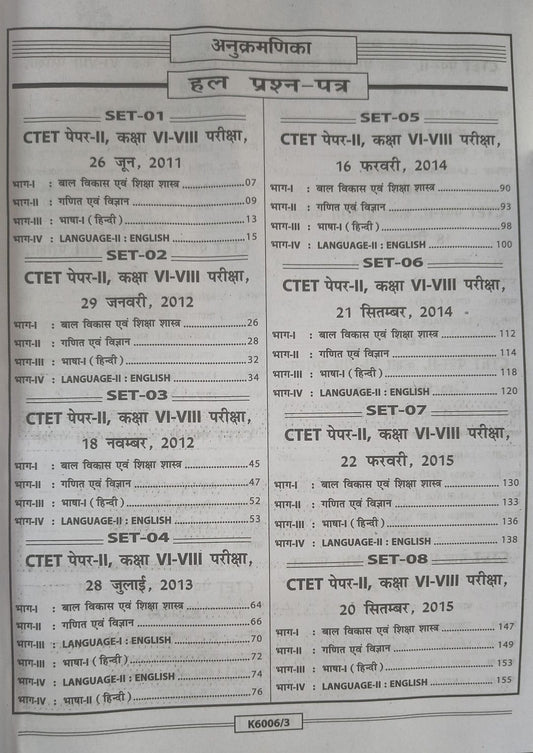 अनुक्रमणिका
हल प्रश्न-पत्र
SET-01
CTET पेपर-II, कक्षा VI-VIII परीक्षा,
26 जून, 2011
भाग-I : बाल विकास एवं शिक्षा शास्त्र ........................07
भाग-II : गणित एवं विज्ञान ........................09
भाग-III : भाषा-I ( हिन्दी ) ........................13
भाग-IV : LANGUAGE-II : ENGLISH ........................15
SET-02
CTET पेपर-II, कक्षा VI-VIII परीक्षा,
29 जनवरी, 2012
भाग-I : बाल विकास एवं शिक्षा शास्त्र ........................26
भाग-II : गणित एवं विज्ञान ........................28
भाग-III : भाषा-I ( हिन्दी ) ........................32
भाग-IV : LANGUAGE-II : ENGLISH ........................34
SET-03
CTET पेपर-II, कक्षा VI-VIII परीक्षा,
18 नवम्बर, 2012
भाग-I : बाल विकास एवं शिक्षा शास्त्र ........................45
भाग-II : गणित एवं विज्ञान ........................47
भाग-III : भाषा-I ( हिन्दी ) ........................52
भाग-IV : LANGUAGE-II : ENGLISH ........................53
SET-04
CTET पेपर-II, कक्षा VI-VIII परीक्षा,
28 जुलाई, 2013
भाग-I : बाल विकास एवं शिक्षा शास्त्र ........................64
भाग-II : गणित एवं विज्ञान ........................66
भाग-III : LANGUAGE-I : ENGLISH ........................70
भाग-III : भाषा-I ( हिन्दी ) ........................72
भाग-IV : LANGUAGE-II : ENGLISH ........................74
भाग-IV : भाषा-II ( हिन्दी ) ........................76
SET-05
CTET पेपर-II, कक्षा VI-VIII परीक्षा,
16 फरवरी, 2014
भाग-I : बाल विकास एवं शिक्षा शास्त्र ........................90
भाग-II : गणित एवं विज्ञान ........................93
भाग-III : भाषा-I ( हिन्दी ) ........................98
भाग-IV : LANGUAGE-II : ENGLISH ........................100
SET-06
CTET पेपर-II, कक्षा VI-VIII परीक्षा,
21 सितम्बर, 2014
भाग-I : बाल विकास एवं शिक्षा शास्त्र ........................112
भाग-II : गणित एवं विज्ञान ........................114
भाग-III : भाषा-I ( हिन्दी ) ........................118
भाग-IV : LANGUAGE-II : ENGLISH ........................120
SET-07
CTET पेपर-II, कक्षा VI-VIII परीक्षा,
22 फरवरी, 2015
भाग-I : बाल विकास एवं शिक्षा शास्त्र ........................130
भाग-II : गणित एवं विज्ञान ........................133
भाग-III : भाषा-I ( हिन्दी ) ........................136
भाग-IV : LANGUAGE-II : ENGLISH ........................138
SET-08
CTET पेपर-II, कक्षा VI-VIII परीक्षा,
20 सितम्बर, 2015
भाग-I : बाल विकास एवं शिक्षा शास्त्र ........................147
भाग-II : गणित एवं विज्ञान ........................149
भाग-III : भाषा-I ( हिन्दी ) ........................153
भाग-IV : LANGUAGE-II : ENGLISH ........................155
K6006/3